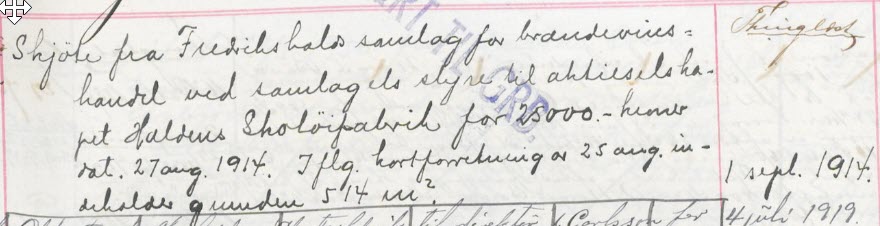 Skjøte fra Fredrikshalds samlag for brændevins=
handel ved samlagets styre til aktieselska-
pet Haldens Skotöifabrik for 25000.- kroner
dat. 27 aug. 1914. Iflg. kortforretning av 25 aug. in-
deholder grunden 514 m².
Thinglæst
1 sept. 1914.
til direktör Carlsson for
4 juli 1919.